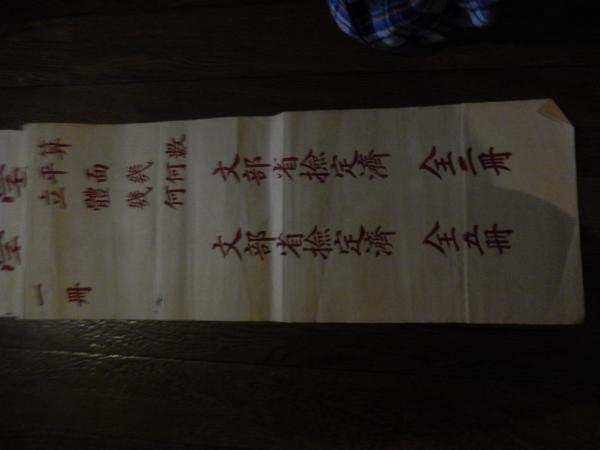 算數
平面幾何
立體幾何
文部省撿定濟 全三冊
文部省撿定濟 全五冊
一冊